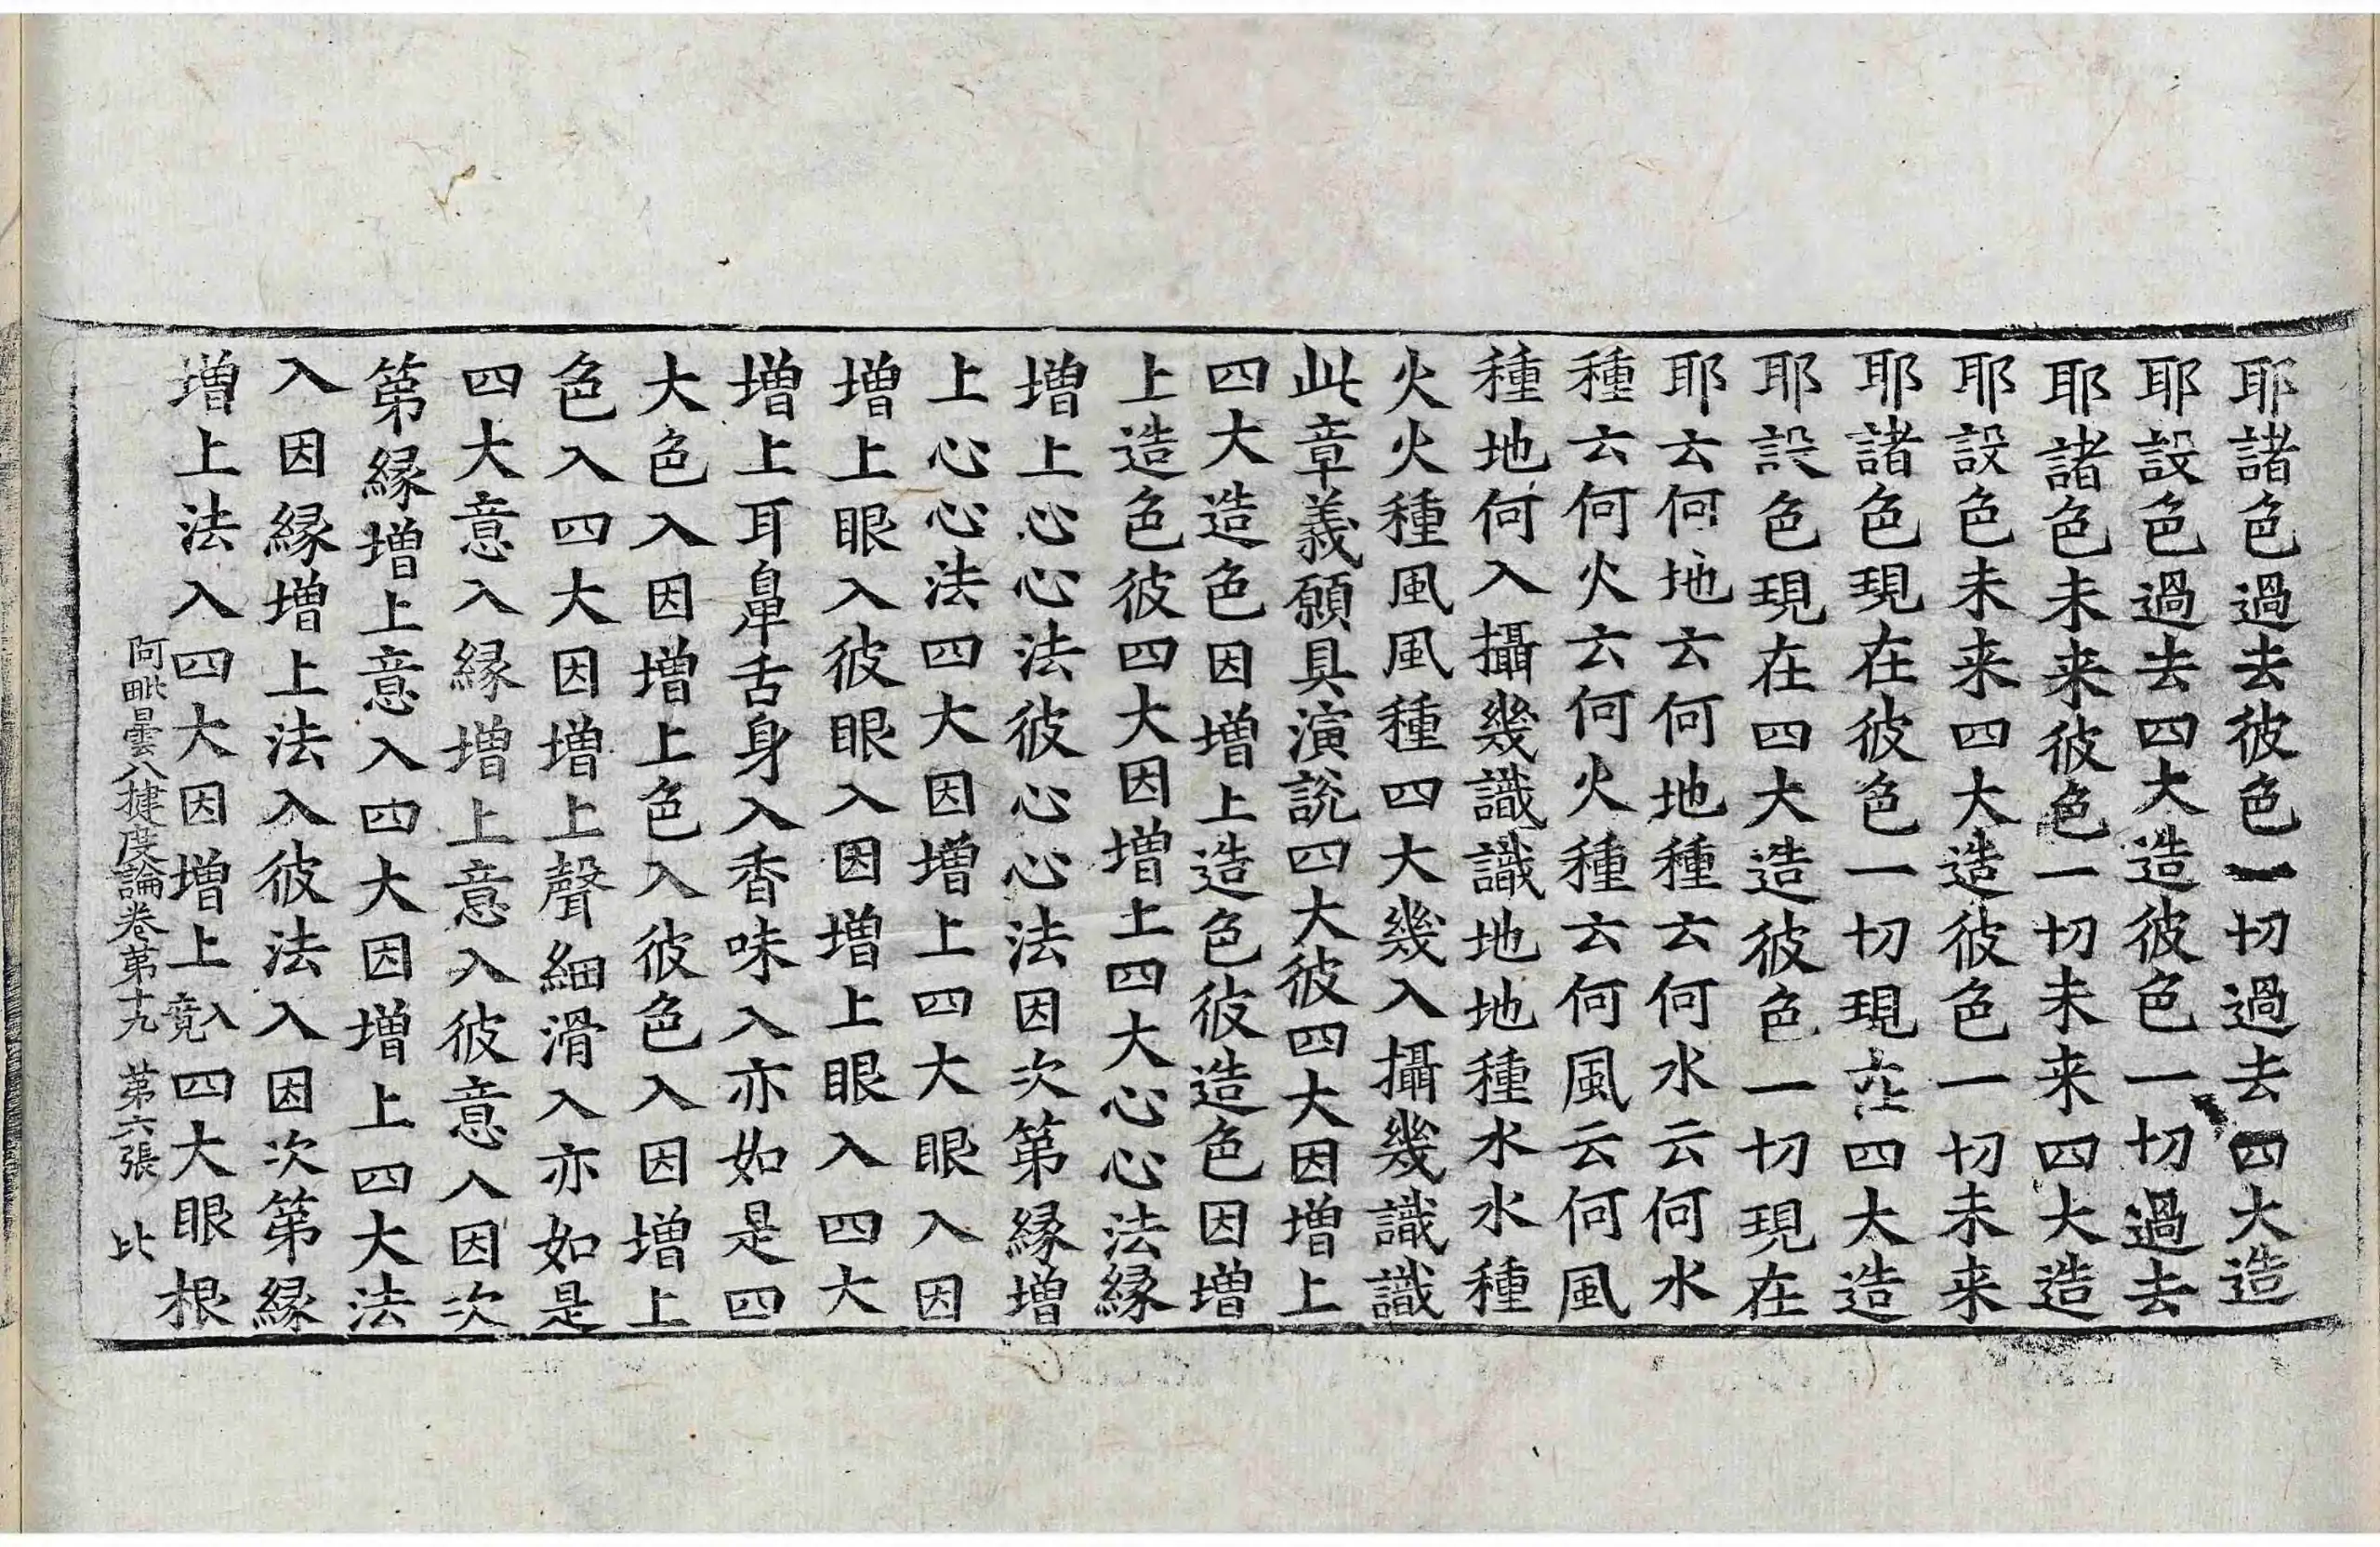 耶諸色過去彼色一切過去四大造
耶設色過去四大造彼色一切過去
耶諸色未来彼色一切未来四大造
耶設色未来四大造彼色一切未来
耶諸色現在彼色一切現在四大造
耶設色現在四大造彼色一切現在
耶云何地云何地種云何水云何水
種云何火云何火種云何風云何風
種地何入攝幾識識地地種水水種
火火種風風種四大幾入攝幾識識
此章義願具演說四大彼四大因增上
四大造色因增上造色彼造色因增
上造色彼四大因增上四大心心法緣
增上心心法彼心心法因次第緣增
上心心法四大因增上四大眼入因
增上眼入彼眼入因增上眼入四大
增上耳鼻舌身入香味入亦如是四
大色入因增上色入彼色入因增上
色入四大因增上聲細滑入亦如是
四大意入緣增上意入彼意入因次
第緣增上意入四大因增上四大法
入因緣增上法入彼法入因次第緣
增上法入四大因增上入竟四大眼根
阿毗曇八揵度論卷第十九 第六張 比